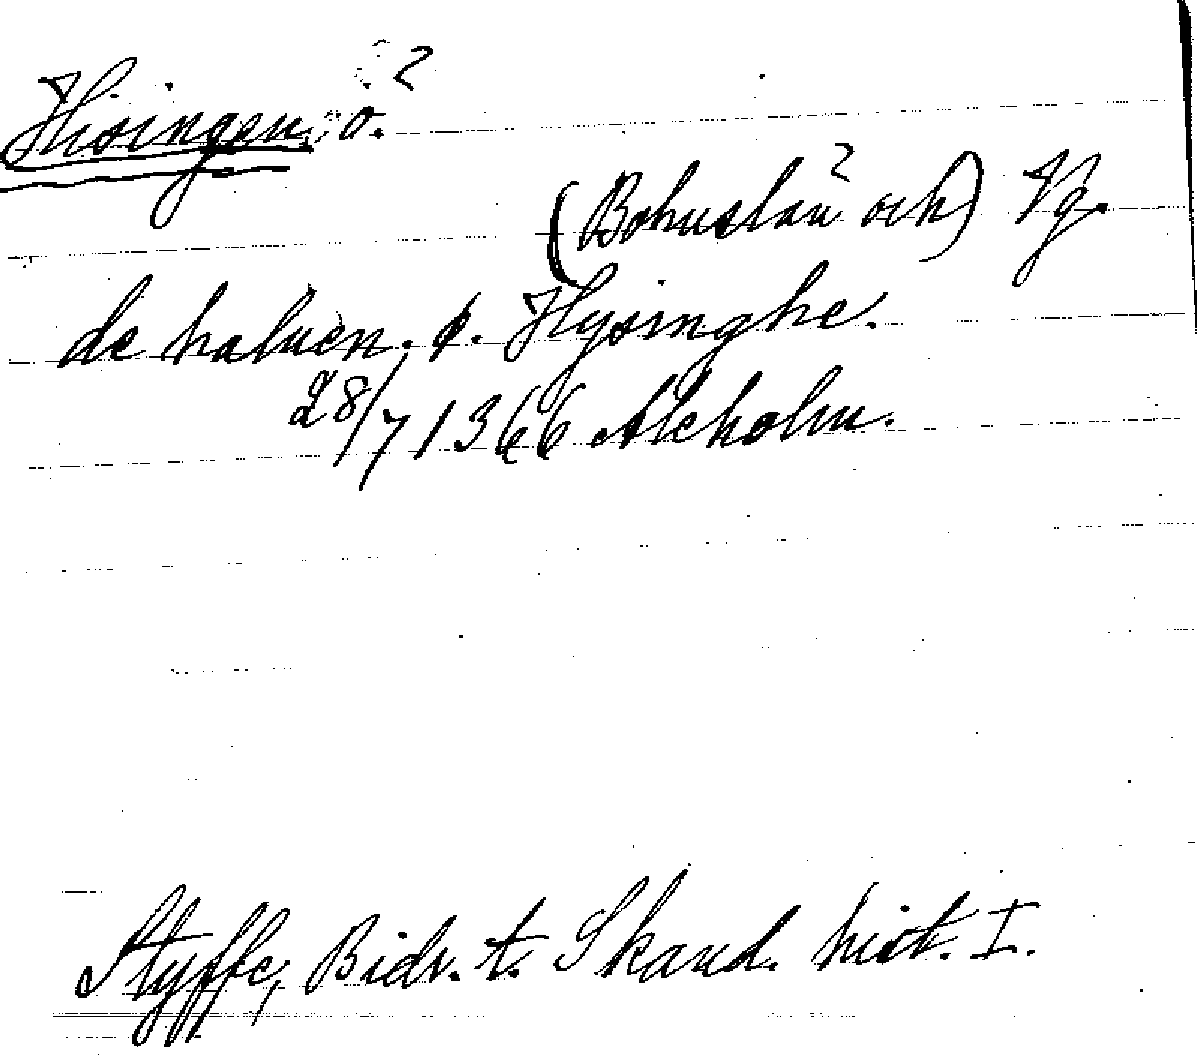 Hisingen. ö. ?
(Bohuslän ? och) Vg.
de haluen. ø. Hysinghe.
28/7 1366 Alcholm.
Styffe, Bidr. t. Skand. hist. I.